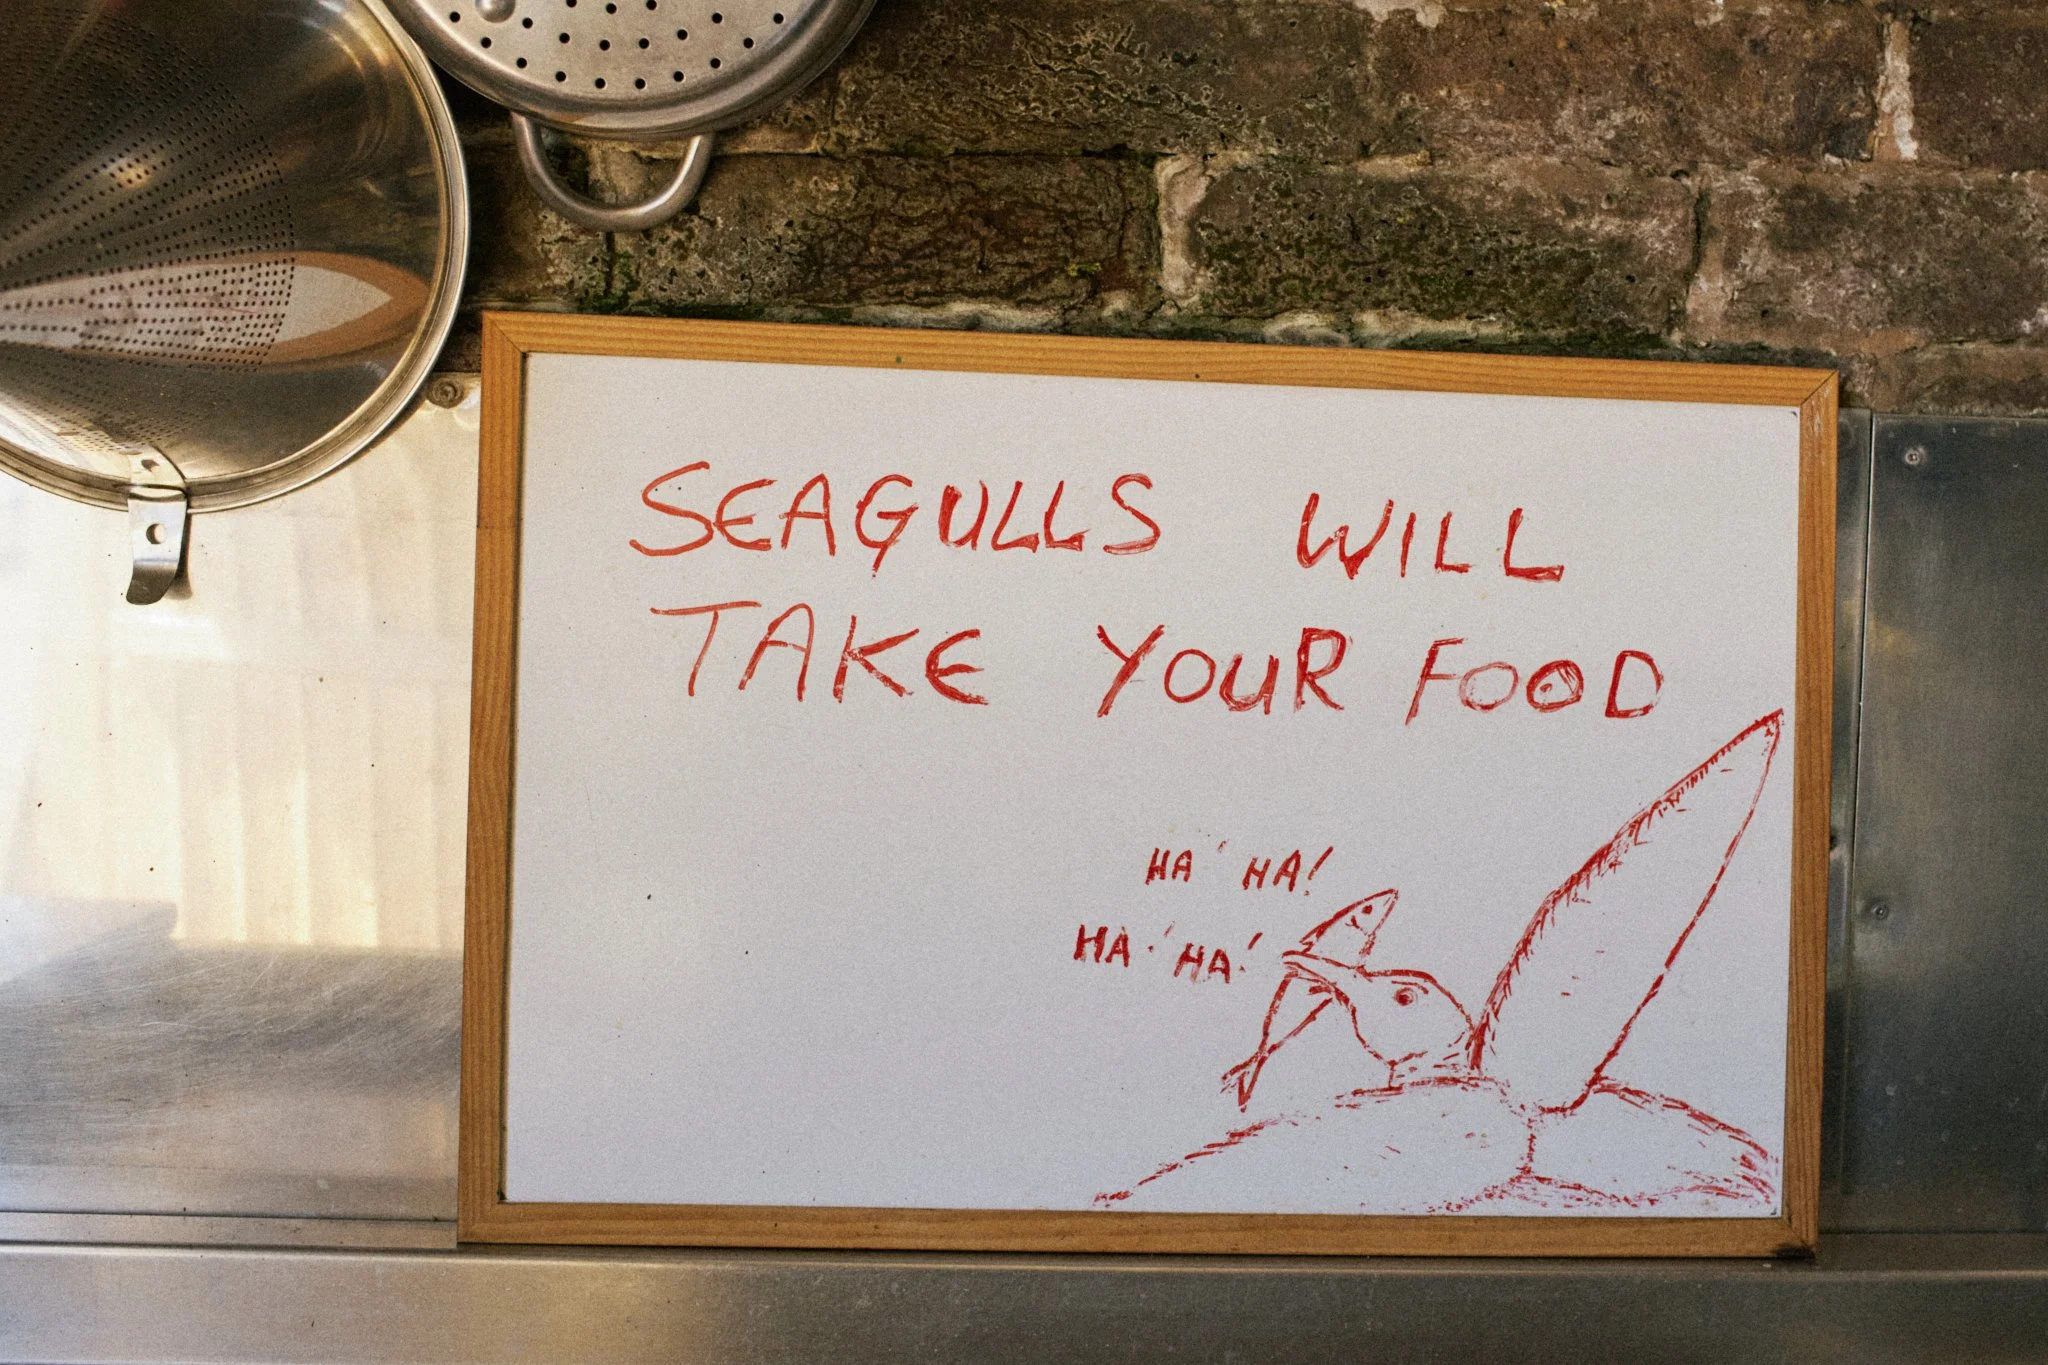 SEAGULLS WILL
TAKE YOUR FOOD
HA' HA!
HA' HA!